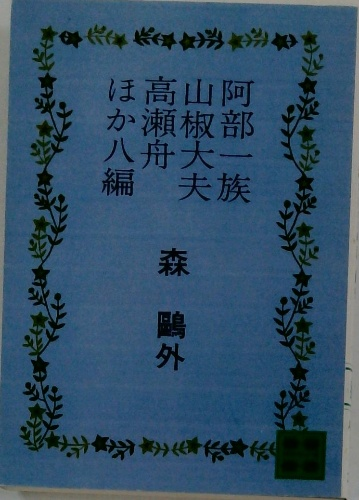 阿部一族
山椒大夫
高瀬舟
ほか八編
森 鷗外